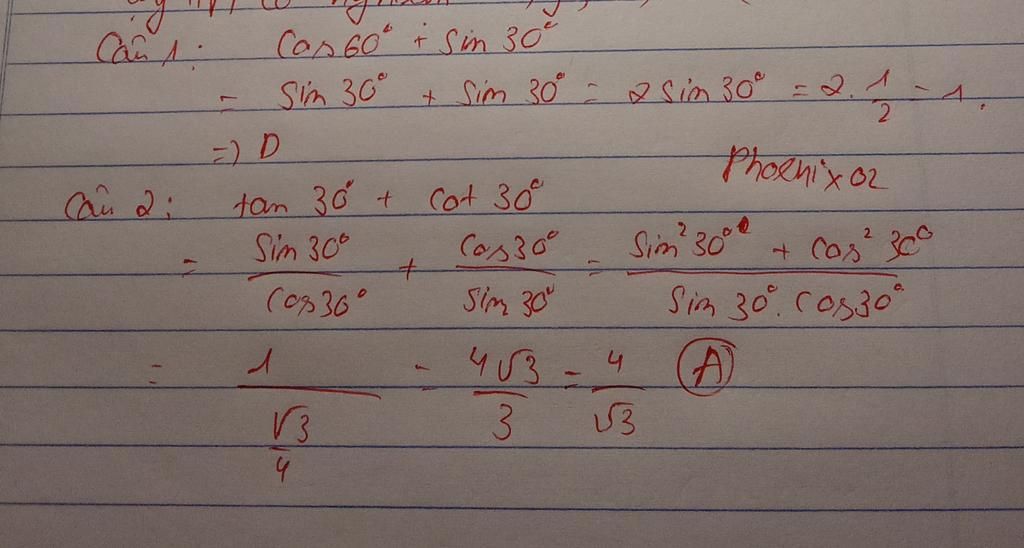 Câu 1: Cos 60° + Sin 30°
= Sin 30° + Sin 30° = 2 Sin 30° = 2. 1/2 = 1.
=) D
Phoenix02
Câu 2: tan 30° + Cot 30°
= Sin 30°/Cos 30° + Cos 30°/Sin 30° = Sin² 30° + Cos² 30°/Sin 30°. Cos 30°
= 1/(√3/4) = 4√3/3 = 4/√3 A